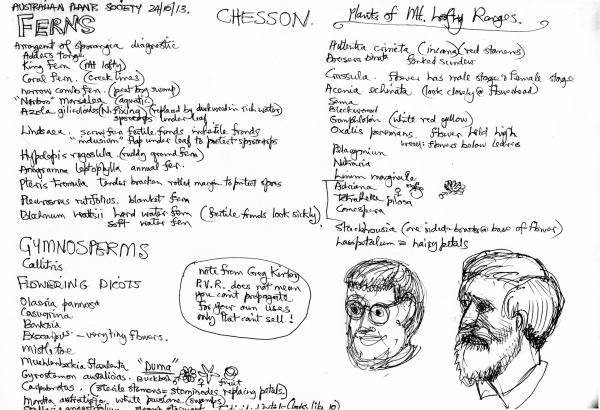 AUSTRALIAN PLANTS SOCIETY 24/10/13.
CHESSON.
FERNS
Arrangent of sporangia diagnostic
Adders tonge
King fern (Mt lofty)
Coral fern. (Creek lines)
narrow comb fern. (peat bog swamp)
"Nardoo" Marsalea (aquatic)
Azola filiculoides (N. fixing) (replaced by duckweed in rich water)
sporocarps under leaf
Lindsaea. screw fern fertile fronds infertile fronds
"indusium" flap under leaf to protect sporocarps
Hypolepis rugosula (ruddy ground fern)
Anogramma leptophylla annual fer.
Pteris tremula tender bracken rolled margin to protect spores
Pleurosorus rutifolius. blanket fern
Blechnum wattsii hard water fern (fertile fronds look sickly)
soft water fern
GYMNOSPERMS
Callitris
FLOWERING DICOTS
Olearia pannosa
Casuarina
Banksia
Exocarpus - vomiting flowers.
Mistletoe
Muehlenbeckia "DUMA"
Gyrostemon australicus. Buckbush ♂ ♀ fruit
Carpobrotus. (sterile stamens = staminodes replacing petals.)
Montia australasica white purslane (swamps)
note from Greg Kirby
P.V.R. does not mean
you can't propagate
for your own uses
only that can't sell!
Plants of Mt. Lofty Ranges.
Adlertia crineta (incana) (red stamens)
Drosera binata forked sundew
Crassula. flower has male stage & female stage
Acaena echinata (look closely @ flowerhead)
Senna
Blackwood
Gompholobium (white red yellow)
Oxalis perennans. flower held high
weed: flowers below leaves
Pelargonium
Nitraria
Linum marginale
Adriana ♀
Tetratheca pilosa
Comesperma
Stackhousia (one sided - bracts @ base of flower)
Lasiopetalum = hairy petals